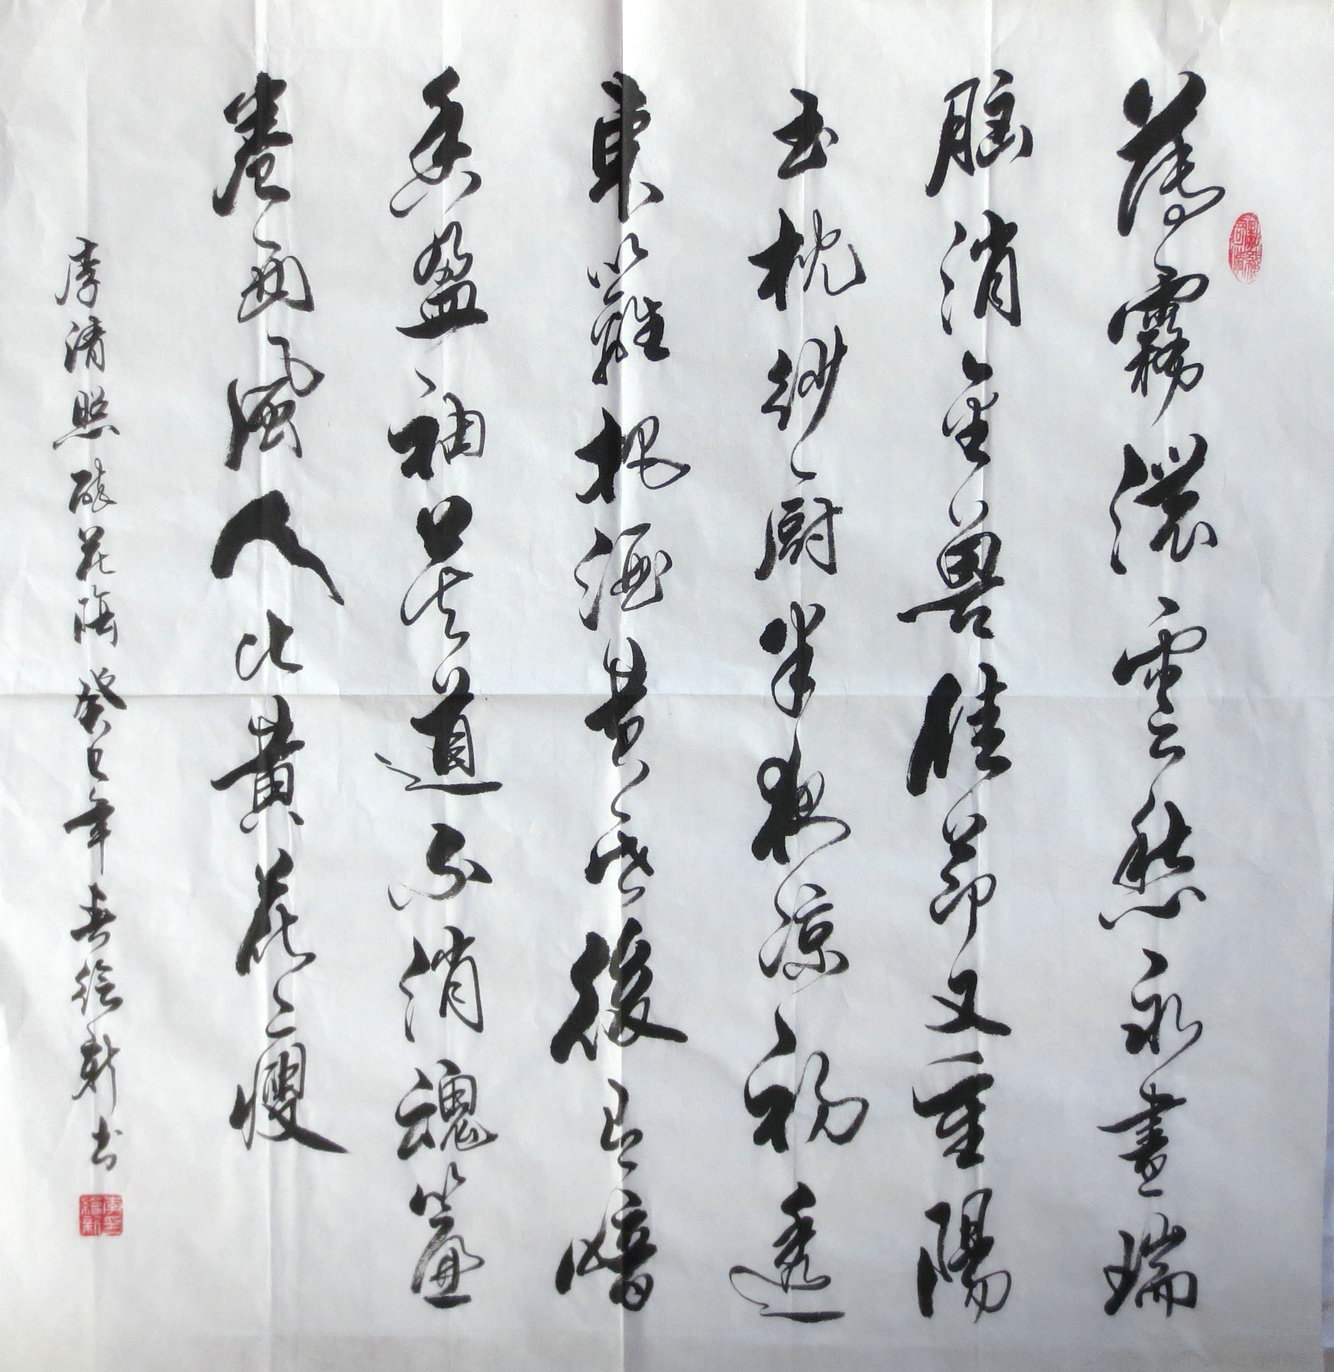 薄霧濃雲愁永晝瑞
腦消金獸佳節又重陽
玉枕紗廚半夜涼初透
東籬把酒黃昏後有暗
香盈袖莫道不消魂簾
卷西風人比黃花瘦
李清照醉花陰癸巳年春繪新书